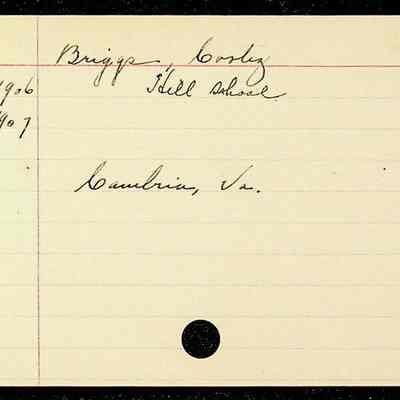 Briggs, Cosby
1906 Hill School
1907
Cambria, Va.